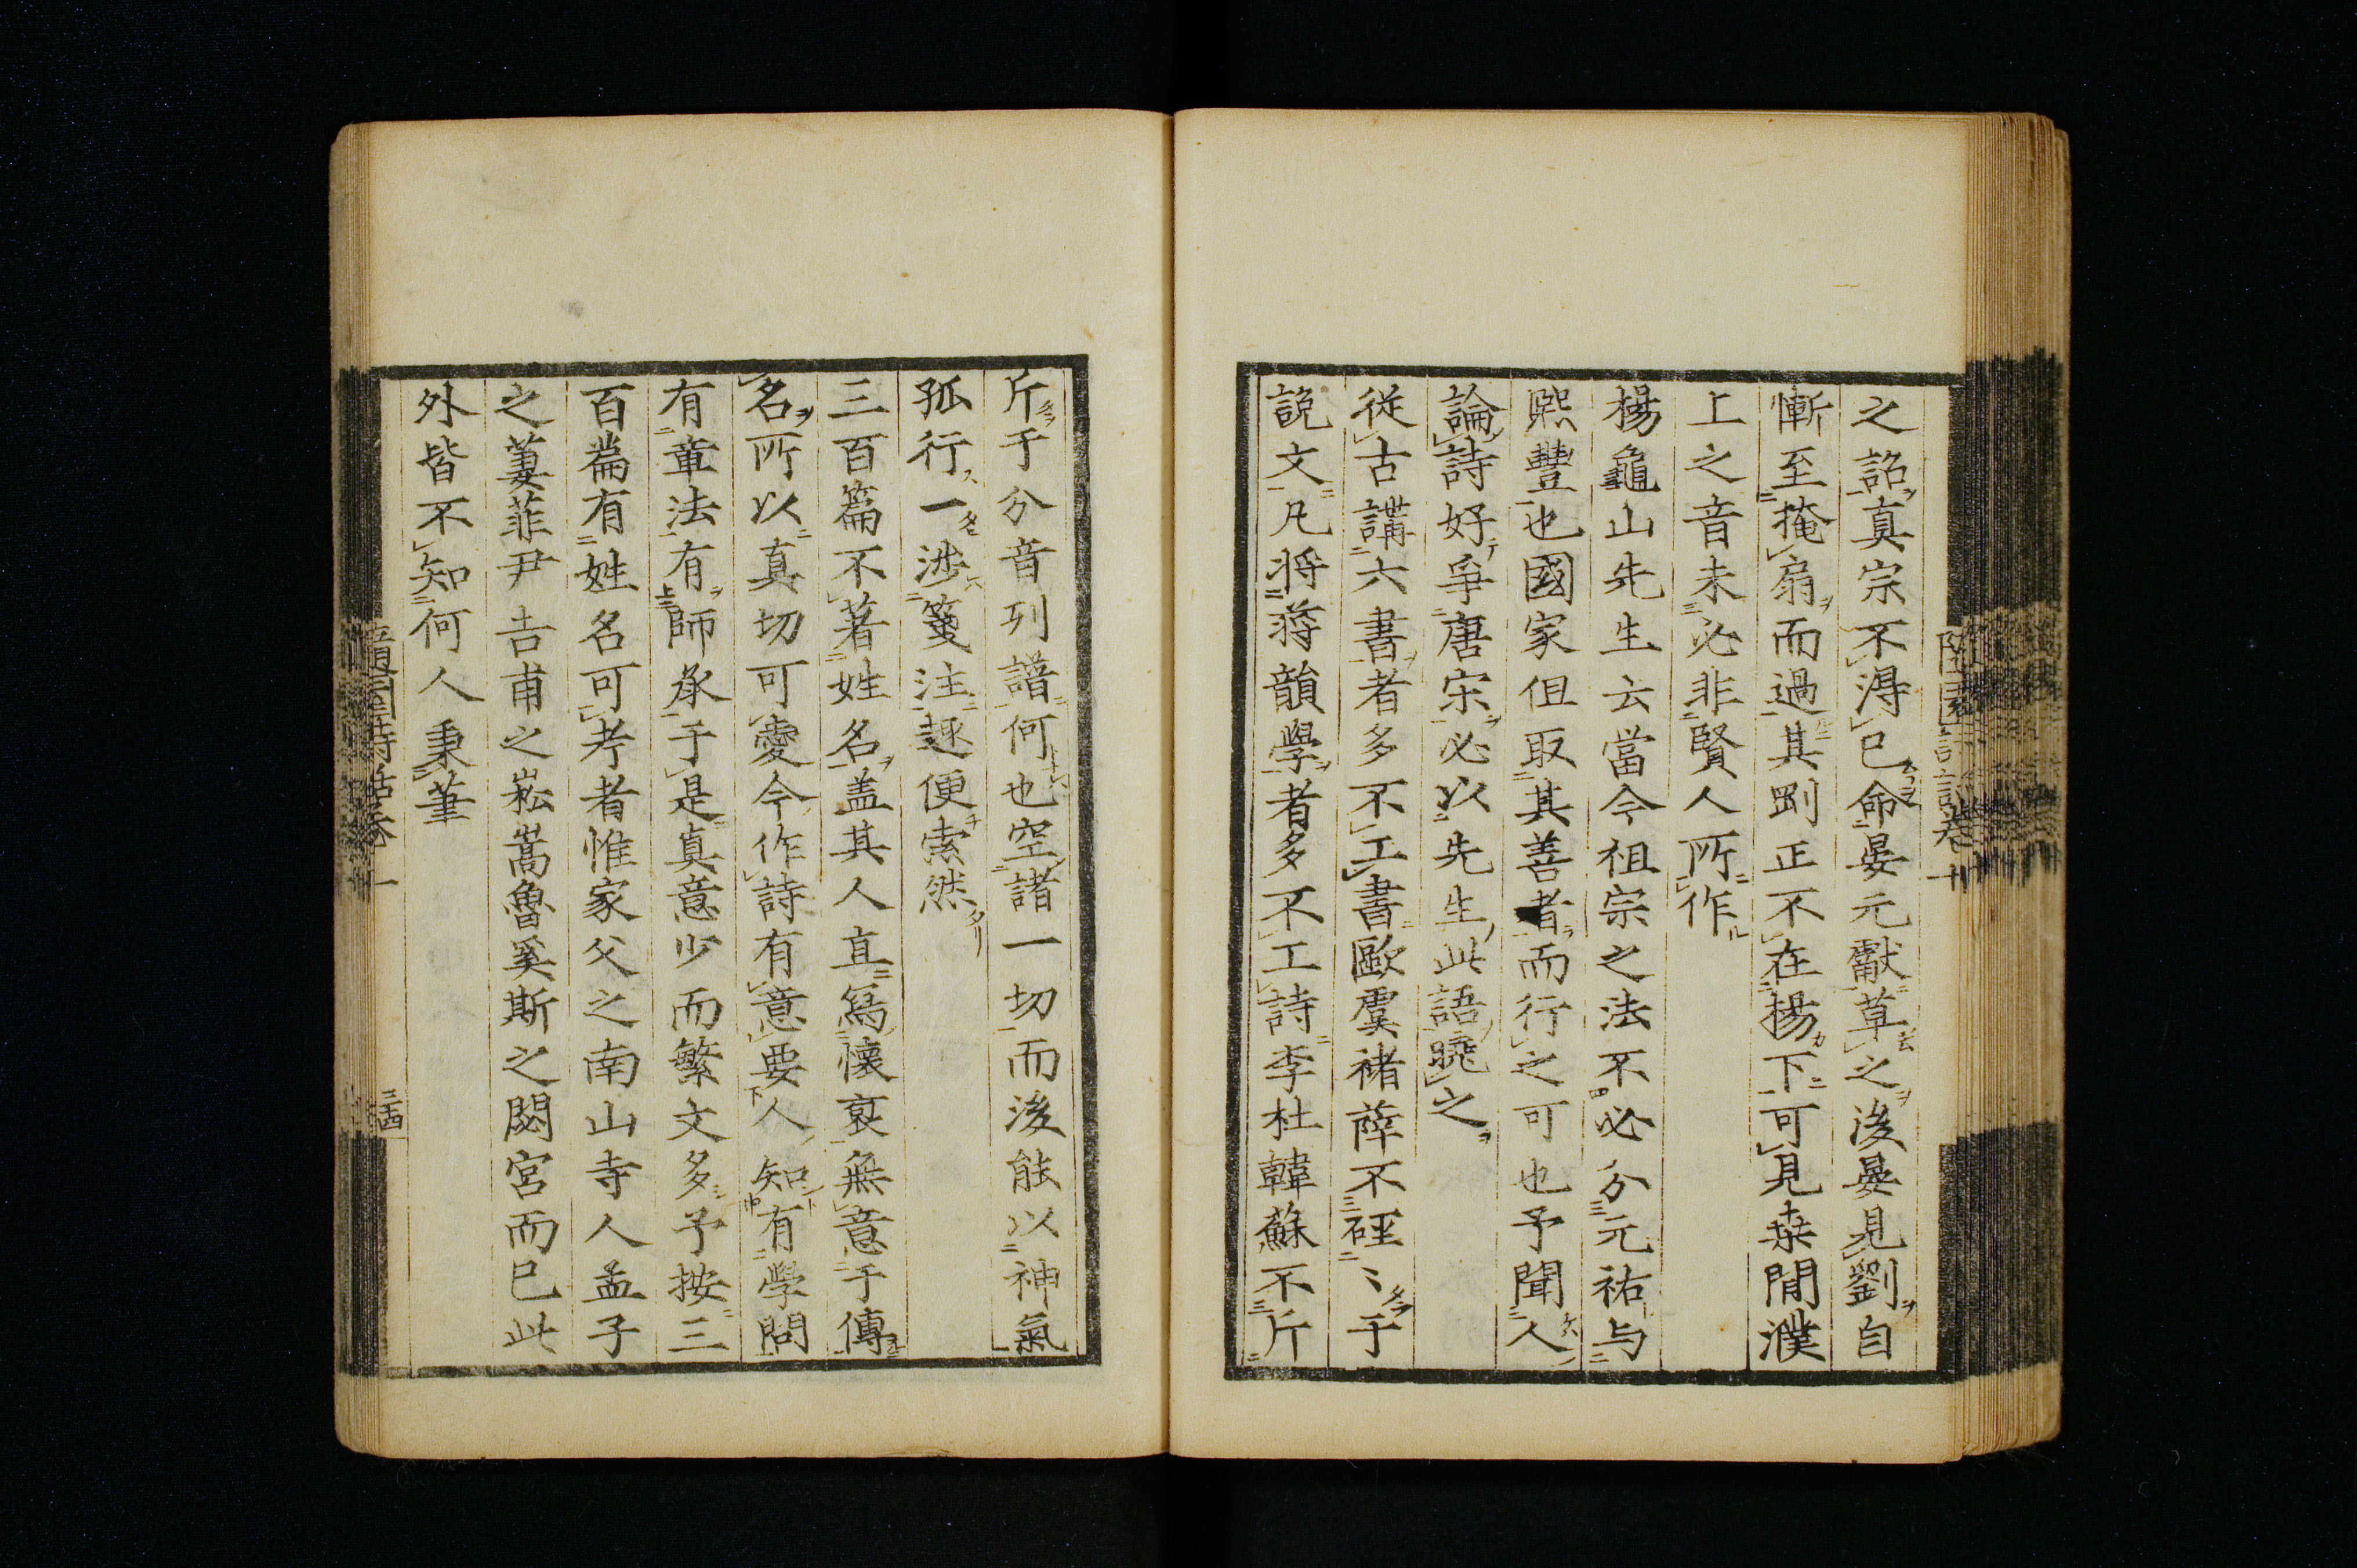 之詔真宗不得已命晏元獻草之後晏見劉自
慚至掩扇而過其剛正不在楊下可見桒間濮
上之音未必非賢人所作
楊龜山先生云當今祖宗之法不必分元祐与
熙豐也國家但取其善者而行之可也予聞人
論詩好爭唐宋必以先生此語曉之
從古講六書者多不工書歐虞褚薛不硜〻于
說文凡將蔣韻學者多不工詩李杜韓蘇不斤
斤于分音列譜何也空諸一切而後能以神氣
孤行一涉箋注趣便索然
三百篇不著姓名盖其人直寫懷裒無意于傳
名所以真切可愛今作詩有意要人知有學問
有章法有師承于是真意少而繁文多予按三
百篇有姓名可考者惟家父之南山寺人孟子
之萋菲尹吉甫之崧嵩魯奚斯之閟宮而已此
外皆不知何人秉筆